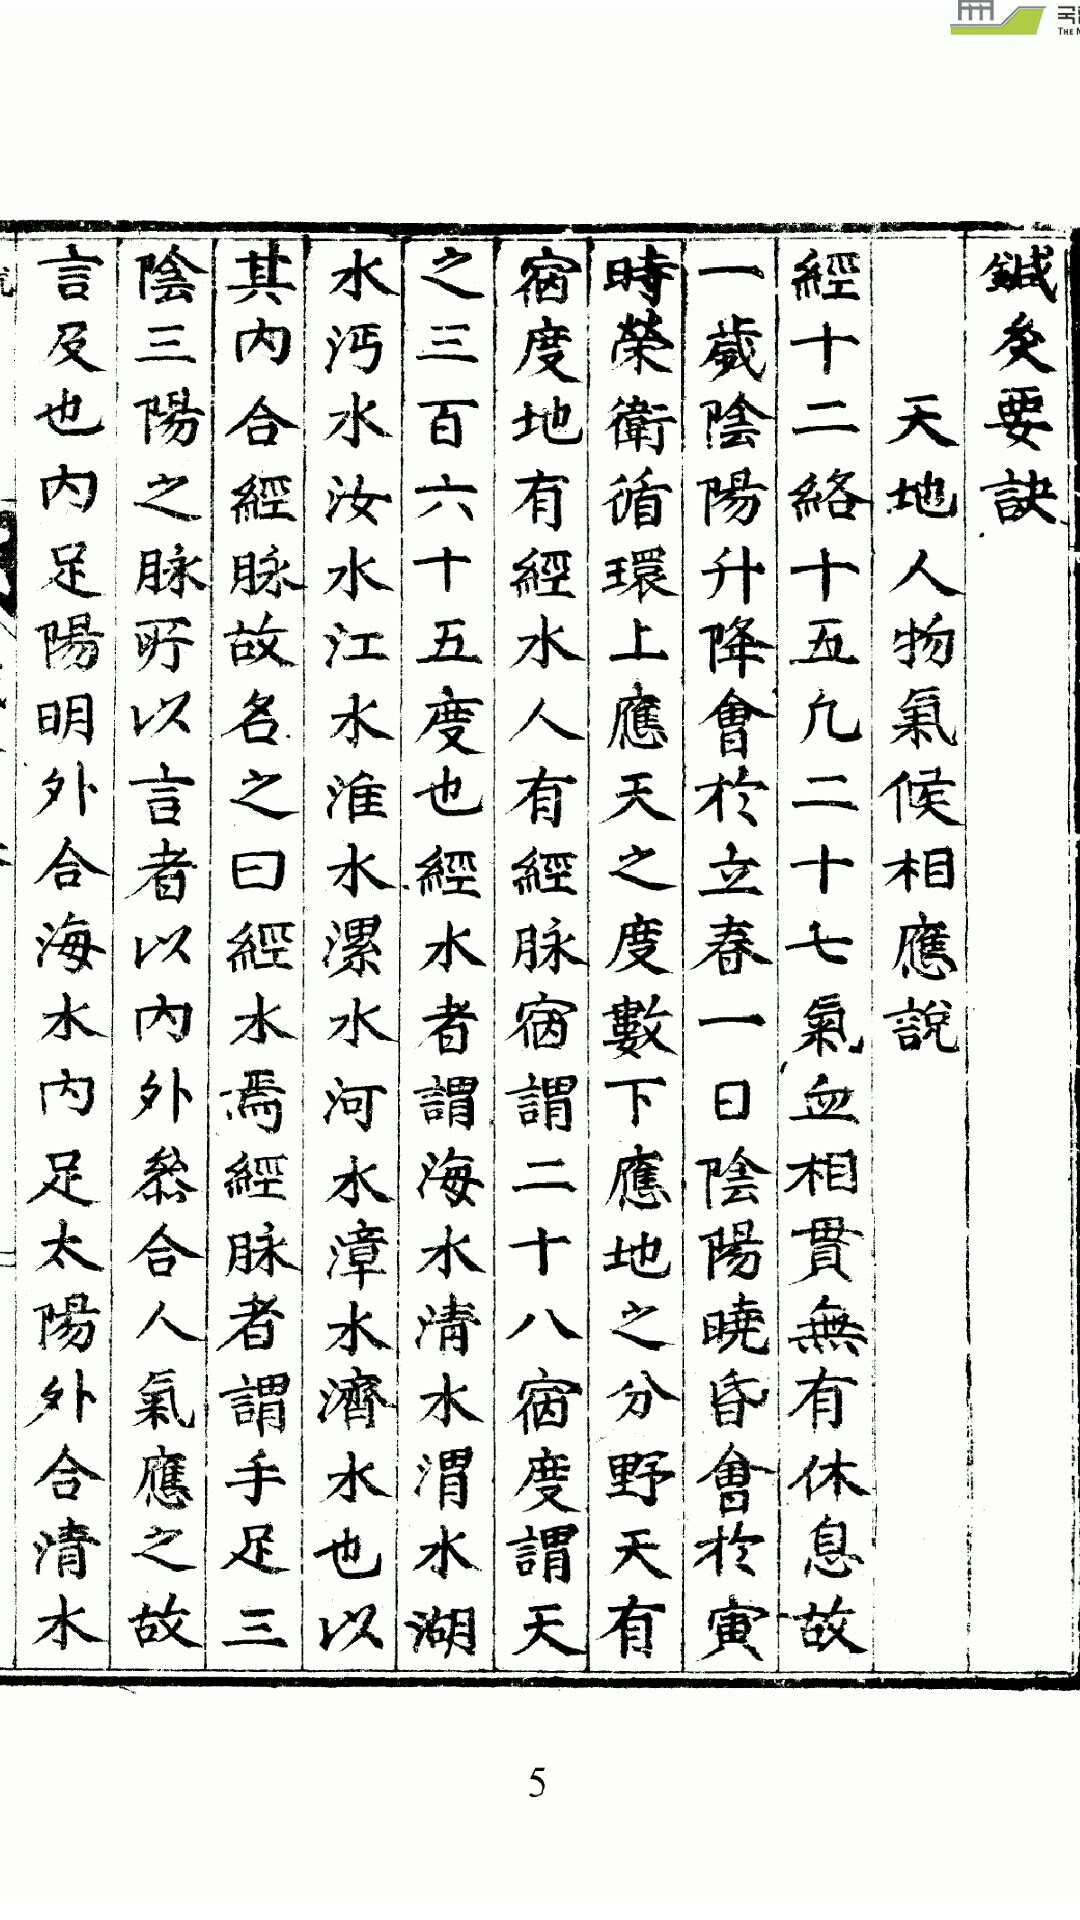 국립
THE N
鍼灸要訣
天地人物氣候相應說
經十二絡十五凢二十七氣血相貫無有休息故
一歲陰陽升降會於立春一日陰陽曉昏會於寅
時榮衛循環上應天之度數下應地之分野天有
宿度地有經水人有經脉宿謂二十八宿度謂天
之三百六十五度也經水者謂海水清水渭水湖
水沔水汝水江水淮水漯水河水漳水濟水也以
其內合經脉故名之曰經水焉經脉者謂手足三
陰三陽之脉所以言者以內外叅合人氣應之故
言及也內足陽明外合海水內足太陽外合清水
5